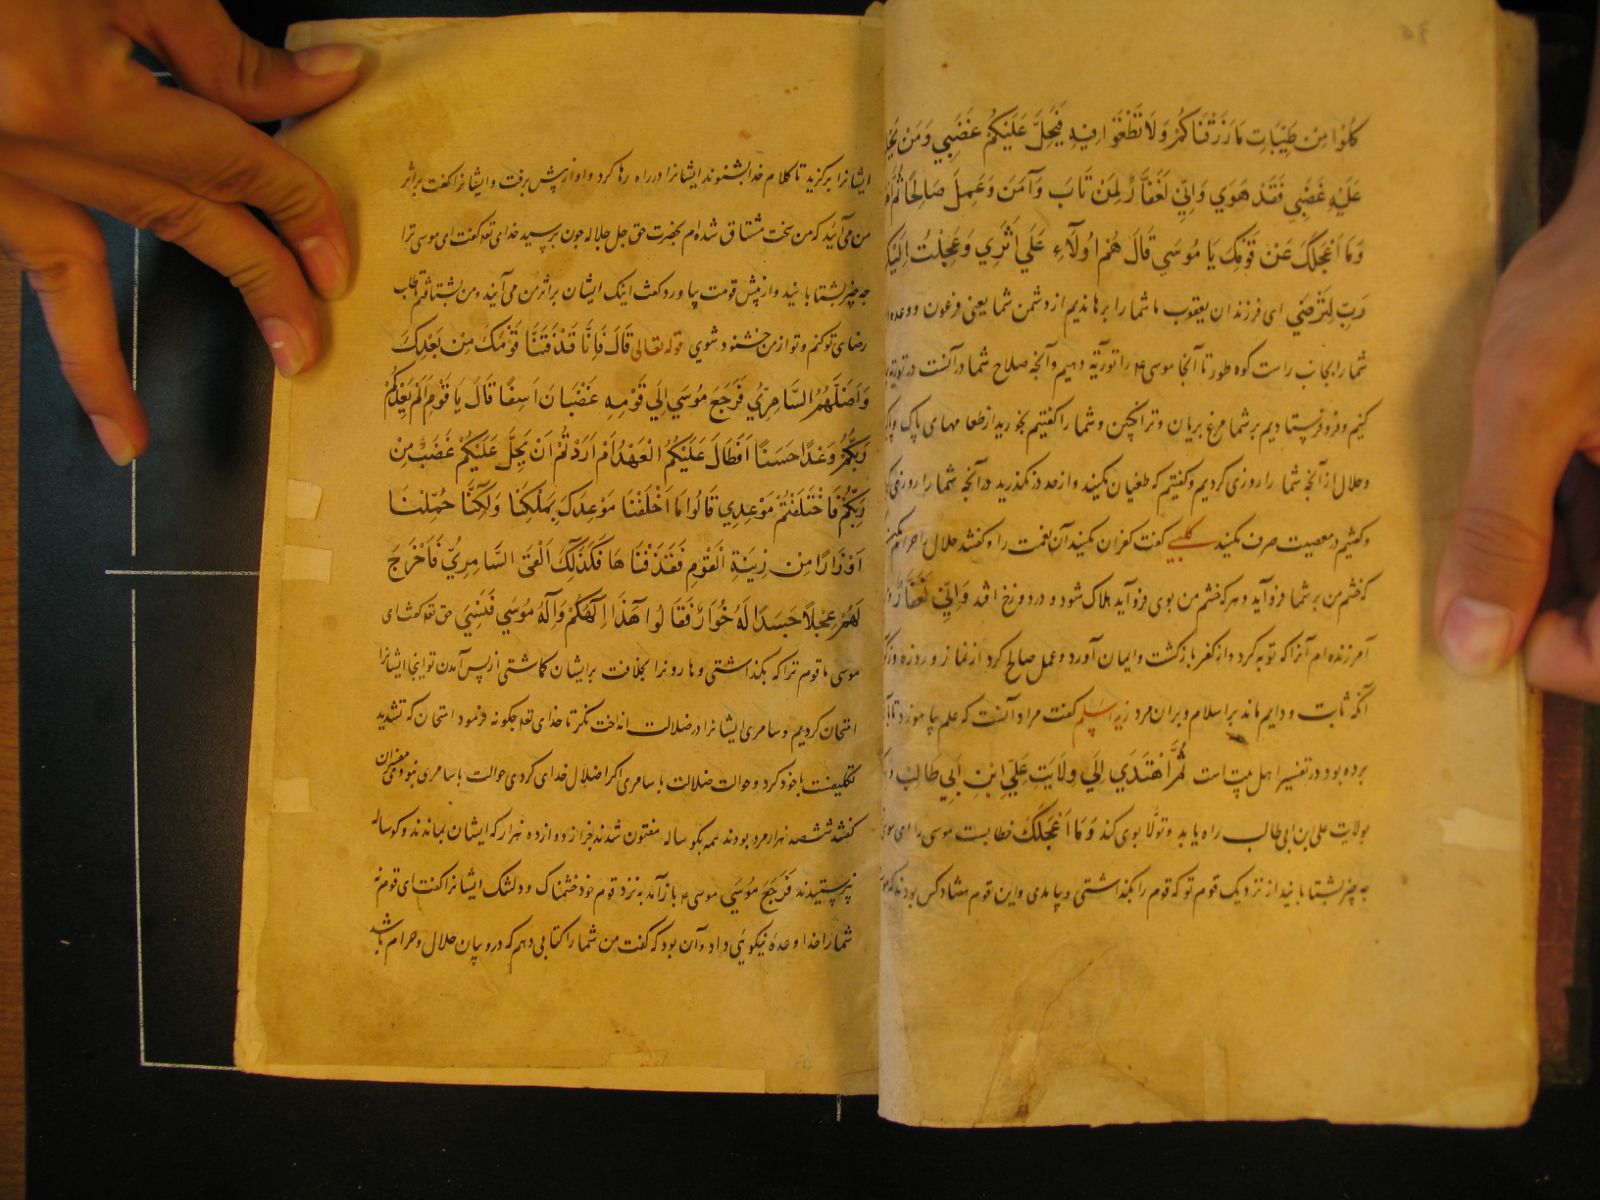 كُلُوا مِنْ طَيِّبَاتِ مَا رَزَقْنَاكُمْ وَلَا تَطْغَوْا فِيهِ فَيَحِلَّ عَلَيْكُمْ غَضَبِي وَمَنْ
عَلَيْهِ غَضَبِي فَقَدْ هَوَي وَاِنِّي لَغَفَّارٌ لِمَنْ تَابَ وَآمَنَ وَعَمِلَ صَالِحًا ثُمَّ
وَمَا اَعْجَلَكَ عَنْ قَوْمِكَ يَا مُوسَي قَالَ هُمْ اُولَآءِ عَلَي اَثَرِي وَعَجِلْتُ اِلَيْكَ
رَبِّ لِتَرْضَي ای فرزندان یعقوب ما شما را برهاندیم از دشمن شما یعنی فرعون و وعده
شما را بجانب راست کوه طور تا آنجا موسی را توریة دهیم و آنچه صلاح شما در آنست در توریة
کنیم و فرو فرستادیم بر شما مرغ بریان و ترانجبین و شما را کفتیم بخورید از طعامهای پاک
و حلال از آنچه شما را روزی کردیم و کفتیم که طغیان مکنید و از حد در مکذرید در آنچه شما را روزی
و کفتیم در معصیت صرف مکنید کلبی کفت کفران مکنید آن نعمت را و کفتند حلال را حرام مکنید
که خشم من بر شما فروآید و هر که خشم من بوی فروآید هلاک شود و در دوزخ افتد وَاِنِّي لَغَفَّارٌ
آمرزنده‌ام آنرا که توبه کرد و از کفر بازکشت و ایمان آورد و عمل صالح کرد از نماز و روزه
آنکه ثابت و دایم ماند بر اسلام و بران مرد زید اسلم کفت مراد آنست که علم بیاموزد تا
برده بود در تفسیر اهل بیت است ثُمَّ اهْتَدَي اِلَي وِلَايَتِ عَلِيِّ ابْنِ اَبِي طَالِبْ
بولایت علی بن ابی طالب راه یابد و تولّا بوی کند وَمَا اَعْجَلَكَ خطابست موسی را ای
بچه چیز بشتابانید از نزدیک قوم تو که قوم را بکذاشتی و بیامدی و این قوم هفتاد کس بودند که
ایشانرا برکزید تا کلام خدا بشنوند ایشانرا در راه رها کرد و او از پیش برفت و ایشانرا کفت بر اثر
من می‌آئید که من سخت مشتاق شده‌ام بحضرت حق جل جلاله چون برسید خدای تعه کفت ای موسی ترا
چه چیز بشتابانید و از پیش قومت بیاورد کفت اینک ایشان بر اثر من می‌آیند و من بشتافتم تا طلب
رضای تو کنم و تو از من خشنود شوی قوله تعالی قَالَ فَاِنَّا قَدْ فَتَنَّا قَوْمَكَ مِنْ بَعْدِكَ
وَاَضَلَّهُمُ السَّامِرِيُّ فَرَجَعَ مُوسَي اِلَي قَوْمِهِ غَضْبَانَ اَسِفًا قَالَ يَا قَوْمِ اَلَمْ يَعِدْكُمْ
رَبُّكُمْ وَعْدًا حَسَنًا اَفَطَالَ عَلَيْكُمُ الْعَهْدُ اَمْ اَرَدْتُمْ اَنْ يَحِلَّ عَلَيْكُمْ غَضَبٌ مِنْ
رَبِّكُمْ فَاخْتَلَفْتُمْ مَوْعِدِي قَالُوا مَا اَخْلَفْنَا مَوْعِدَكَ بِمَلْكِنَا وَلَكِنَّا حُمِّلْنَا
اَوْزَارًا مِنْ زِينَةِ الْقَوْمِ فَقَذَفْنَاهَا فَكَذَلِكَ اَلْقَي السَّامِرِيُّ فَاَخْرَجَ
لَهُمْ عِجْلًا جَسَدًا لَهُ خُوَارٌ فَقَالُوا هَذَا اِلَهُكُمْ وَاِلَهُ مُوسَي فَنَسِيَ حق تعه کفت ای
موسی ما قوم ترا که بکذاشتی و هارونرا بخلافت بر ایشان کماشتی از پس آمدن تو اینجا ایشانرا
امتحان کردیم و سامری ایشانرا در ضلالت انداخت نکر تا خدای تعه چکونه فرمود امتحان که تشدید
تکلیفست با خود کرد و حوالت ضلالت با سامری اکر اضلال خدای کردی حوالت با سامری نبودی مفسران
کفتند ششصد هزار مرد بودند همه بکوساله مفتون شدند جز از دوازده هزار که ایشان بماندند و کوساله
نپرستیدند فَرَجَعَ مُوسَي موسی بازآمد به نزد قوم خود خشمناک و دلتنک ایشانرا کفت ای قوم نه
شما را خدا وعدهٔ نیکویی داد و آن بود که کفت من شما را کتابی دهم که درو بیان حلال و حرام باشد